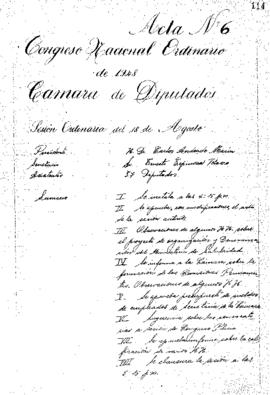 114
Acta Nº 6
Congreso Nacional Ordinario
de 1948
Camara de Diputados
Sesión Ordinaria del 18 de Agosto
Presidente H. D. Carlos Andrade Marín
Secretario Sr. Ernesto Espinosa Velasco
Asistentes 57 Diputados
Sumario I Se instala a las 4:15 p.m.
II Se aprueba, con modificaciones, el acta
de la sesión anterior
III Observaciones de algunos H.H. sobre
el proyecto de organización y
del Ministerio de Salubridad
IV Se informa a la Cámara sobre la
formación de las Comisiones Permanentes.
Observaciones de algunos H.H.
V Se aprueba presupuesto de sueldos
de empleados de Secretaría de la Cámara
VI Sugerencia sobre las
a sesión de Congreso Pleno
VII Se aprueba informe sobre la calificación
de varios H.H.
VIII Se clausura la sesión a las
5:15 p.m.